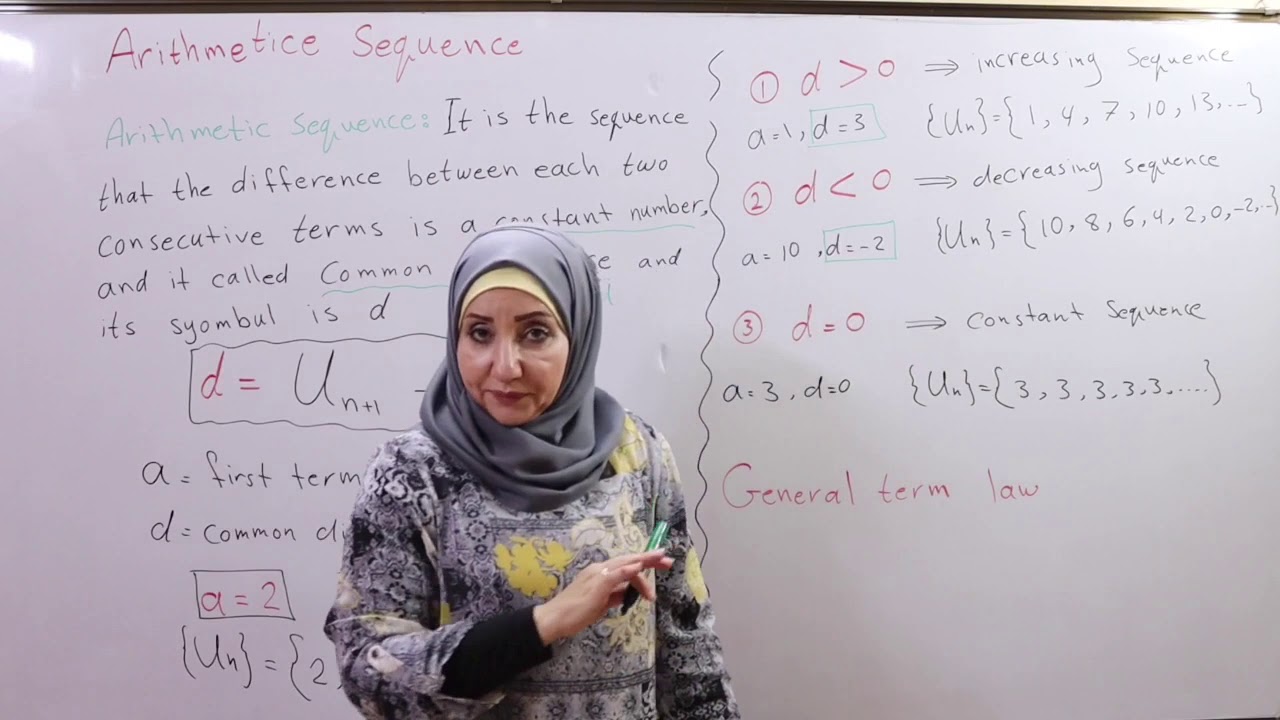 Arithmetice Sequence
Arithmetic sequence: It is the sequence
that the difference between each two
consecutive terms is a constant number,
and it called Common and
its syombul is d
d = Un+1 -
a = first term
d = common
a = 2
{Un} = {2
① d > 0 ⇒ increasing sequence
a=1, d=3 {Un}={1, 4, 7, 10, 13, ...}
② d < 0 ⇒ decreasing sequence
a=10, d=-2 {Un}={10, 8, 6, 4, 2, 0, -2, ..}
③ d = 0 ⇒ constant Sequence
a=3, d=0 {Un}={3, 3, 3, 3, 3, ....}
General term law